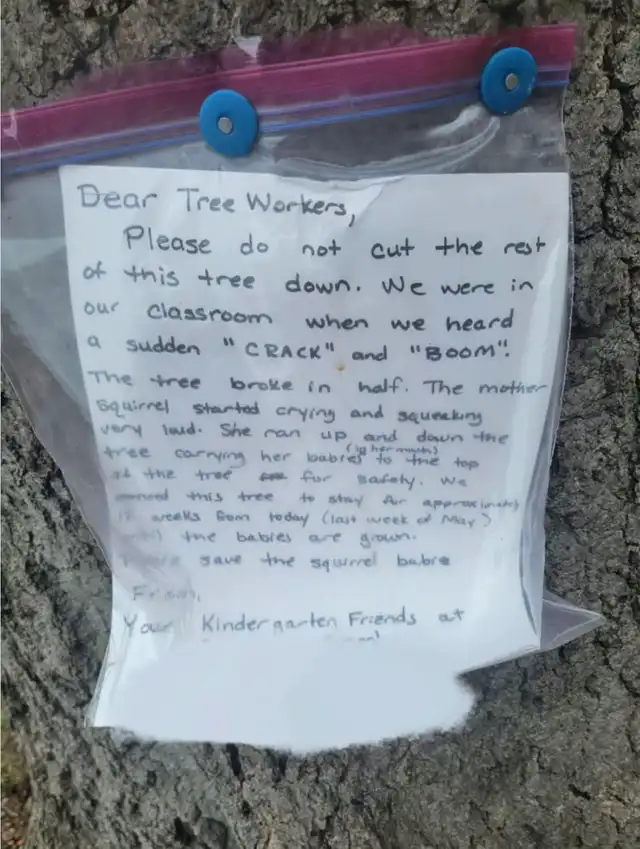 Dear Tree Workers,
Please do not cut the rest
of this tree down. We were in
our classroom when we heard
a sudden "CRACK" and "BOOM".
The tree broke in half. The mother
squirrel started crying and squeaking
very loud. She ran up and down the
tree carrying her babies (in her mouth) to the top
of the tree for safety. We
this tree to stay for approximately
weeks from today (last week of May)
the babies are grown.
save the squirrel babie
From,
Your Kindergarten Friends at